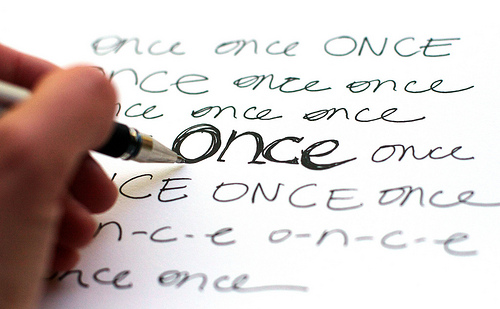 once once ONCE
once once once
once once once
once once
ONCE ONCE once
o-n-c-e o-n-c-e
once once